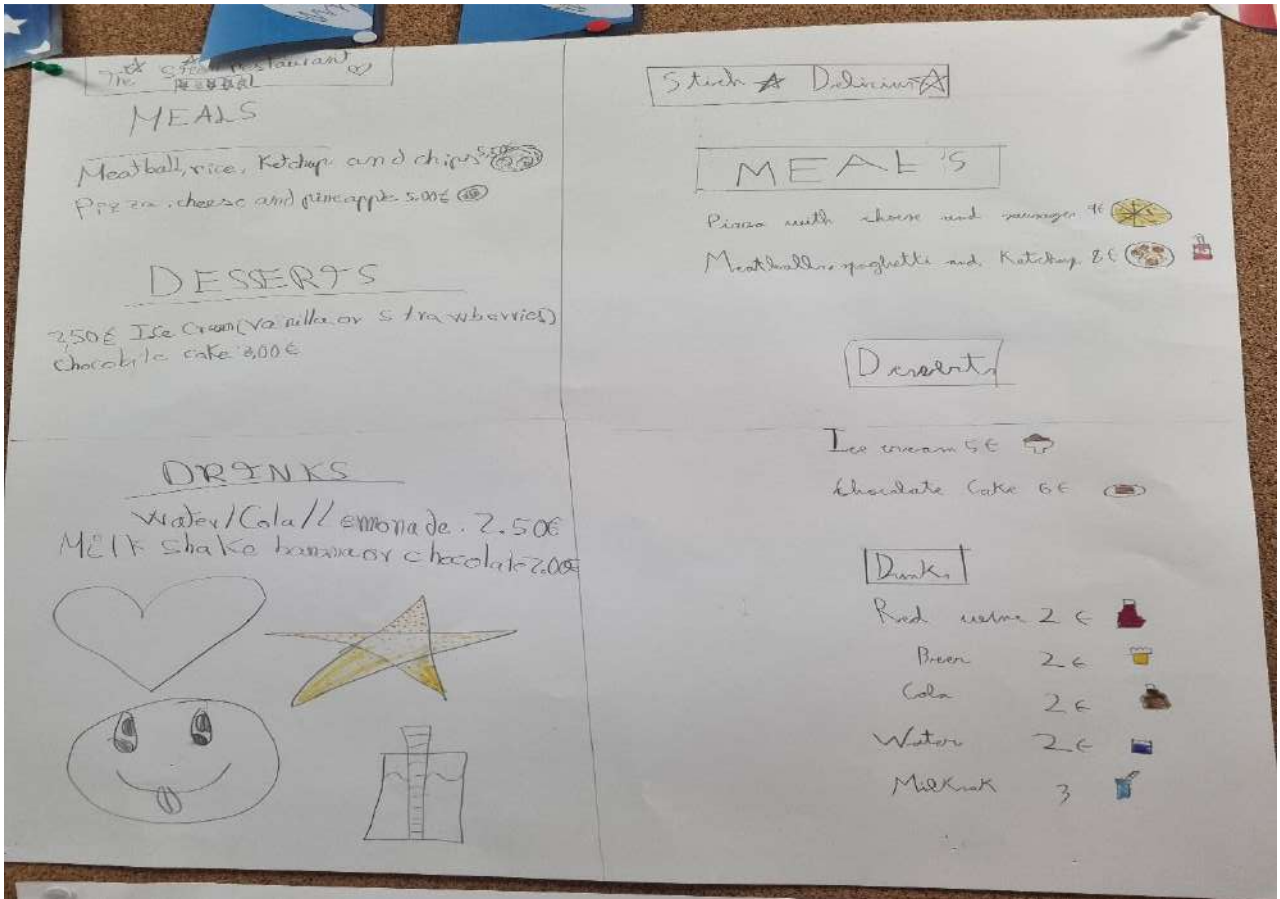 The Star restaurant
MEALS
Meatball, rice, Ketchup and chips 5,50€
Pizza, cheese and pineapple 5.00€
DESSERTS
2,50€ Ise Cream (Vanilla or strawberries)
Chocolate cake 3,00€
DRINKS
Water/Cola/Lemonade. 2.50€
Milk shake banana or chocolate 2.00€
Delicius
MEAL'S
Pizza with cheese and sausages 9€
Meatballs, spaghetti and Ketchup 8€
Desserts
Ice cream 5€
Chocolate Cake 6€
Drinks
Red wine 2€
Beer 2€
Cola 2€
Water 2€
3